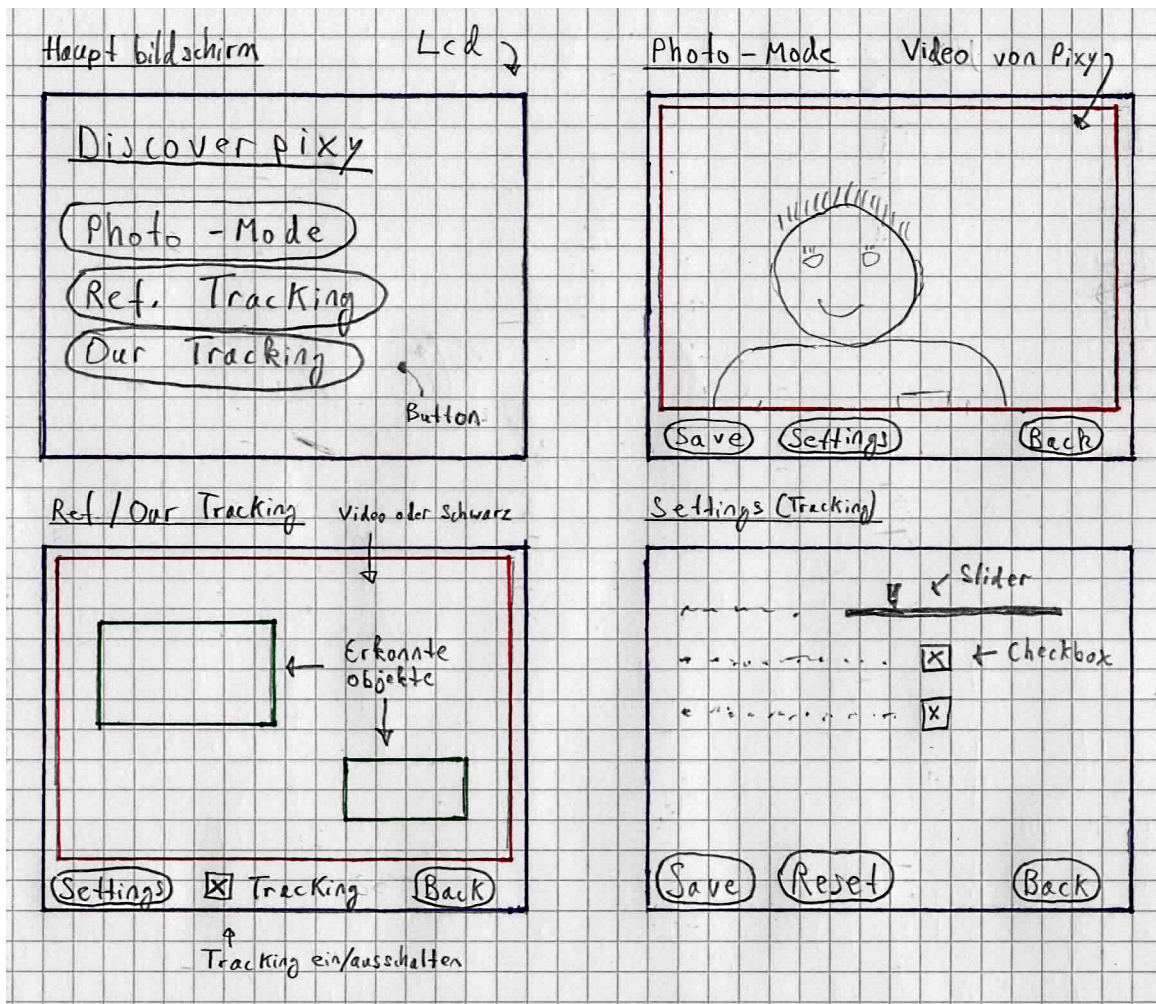 Hauptbildschirm
Lcd
Discover pixy
Photo - Mode
Ref. Tracking
Our Tracking
Button
Photo - Mode
Video von Pixy
Save
Settings
Back
Ref / Our Tracking
Video oder Schwarz
Erkannte
objekte
Settings
Tracking
Back
Tracking ein/ausschalten
Settings (Tracking)
Slider
Checkbox
Save
Reset
Back